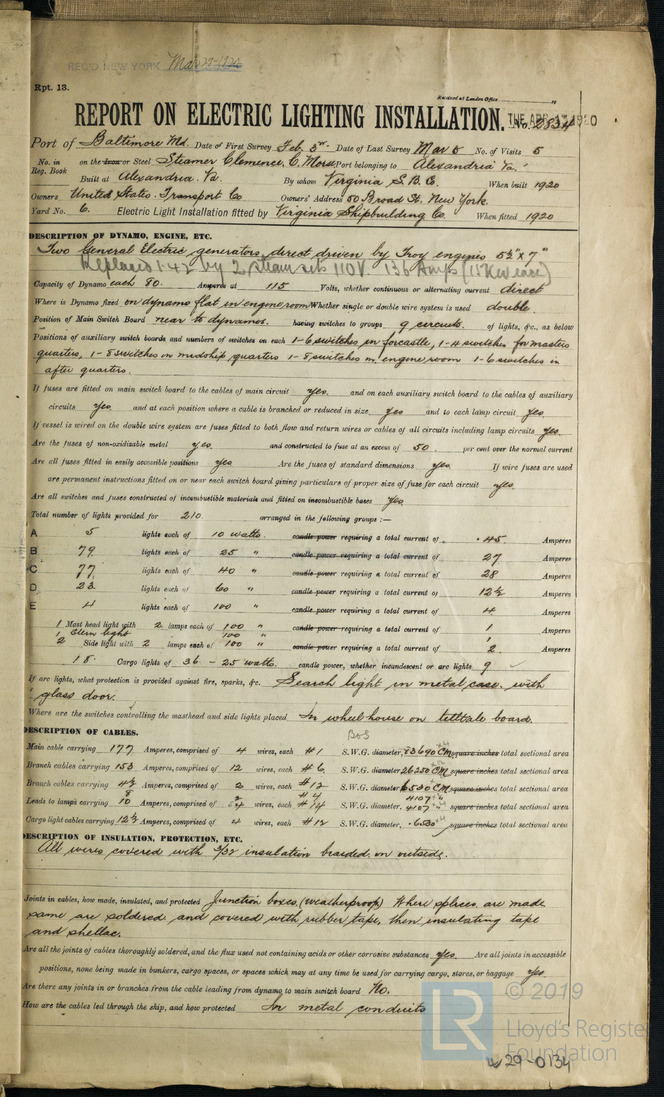 REC'D NEW YORK Mar 29-1920
Rpt. 13.
Received at London Office
REPORT ON ELECTRIC LIGHTING INSTALLATION. No. 2834
THU. APR. 1920
Port of Baltimore Md. Date of First Survey Feb 5th Date of Last Survey Mar 5 No. of Visits 5
No. in Reg. Book on the Iron or Steel Steamer Clemence C. Morse Port belonging to Alexandria Va.
Built at Alexandria. Va. By whom Virginia S.B.C. When built 1920
Owners United States Transport Co Owners' Address 50 Broad St. New York.
Yard No. 6. Electric Light Installation fitted by Virginia Shipbuilding Co. When fitted 1920
DESCRIPTION OF DYNAMO, ENGINE, ETC.
Two General Electric generators direct driven by Troy engines 5½" x 7"
Replaced 1.42 by 2 steam sets 110V. 136 Amps (15 Kw each)
Capacity of Dynamo each 80. Amperes at 115 Volts, whether continuous or alternating current direct
Where is Dynamo fixed on dynamo flat in engine room Whether single or double wire system is used double.
Position of Main Switch Board near to dynamos. having switches to groups 9 circuits. of lights, &c., as below
Positions of auxiliary switch boards and numbers of switches on each 1-6 switches in forcastle, 1-4 switches for masters
quarters, 1-8 switches in midship quarters 1-8 switches in engine room 1-6 switches in
after quarters.
If fuses are fitted on main switch board to the cables of main circuit yes. and on each auxiliary switch board to the cables of auxiliary
circuits yes and at each position where a cable is branched or reduced in size yes and to each lamp circuit yes
If vessel is wired on the double wire system are fuses fitted to both flow and return wires or cables of all circuits including lamp circuits yes
Are the fuses of non-oxidizable metal yes and constructed to fuse at an excess of 50 per cent over the normal current
Are all fuses fitted in easily accessible positions yes Are the fuses of standard dimensions yes. If wire fuses are used
are permanent instructions fitted on or near each switch board giving particulars of proper size of fuse for each circuit yes.
Are all switches and fuses constructed of incombustible materials and fitted on incombustible bases yes
Total number of lights provided for 210. arranged in the following groups :—
A 5 lights each of 10 watts. candle power requiring a total current of .45 Amperes
B 79 lights each of 25 " candle power requiring a total current of 27 Amperes
C 77 lights each of 40 " candle power requiring a total current of 28 Amperes
D 23 lights each of 60 " candle power requiring a total current of 12½ Amperes
E 4 lights each of 100 " candle power requiring a total current of 4 Amperes
1 Mast head light with 2 lamps each of 100 " candle power requiring a total current of 1 Amperes
1 Stern light 100 " 1
2 Side light with 2 lamps each of 100 " candle power requiring a total current of 2 Amperes
18. Cargo lights of 36 - 25 watts. candle power, whether incandescent or arc lights 9
If arc lights, what protection is provided against fire, sparks, &c. Search light in metal case, with
glass door.
Where are the switches controlling the masthead and side lights placed In wheel house on telltale board.
DESCRIPTION OF CABLES.
B&S
Main cable carrying 177 Amperes, comprised of 4 wires, each #1 S.W.G. diameter, 83690 CM square inches total sectional area
Branch cables carrying 153 Amperes, comprised of 12 wires, each #6 S.W.G. diameter, 26250 CM square inches total sectional area
Branch cables carrying 4½ Amperes, comprised of 2 wires, each #12 S.W.G. diameter, 6530 CM square inches total sectional area
Leads to lamps carrying 8 10 Amperes, comprised of 2 wires, each #14 S.W.G. diameter, 4107 4107 square inches total sectional area
Cargo light cables carrying 12½ Amperes, comprised of 4 wires, each #12 S.W.G. diameter, .6530 square inches total sectional area
DESCRIPTION OF INSULATION, PROTECTION, ETC.
All wires covered with 3/32 insulation braided on outside.
Joints in cables, how made, insulated, and protected Junction boxes (weatherproof) Where splices are made
same are soldered and covered with rubber tape, then insulating tape
and shellac.
Are all the joints of cables thoroughly soldered, and the flux used not containing acids or other corrosive substances yes. Are all joints in accessible
positions, none being made in bunkers, cargo spaces, or spaces which may at any time be used for carrying cargo, stores, or baggage yes
Are there any joints in or branches from the cable leading from dynamo to main switch board No.
How are the cables led through the ship, and how protected In metal conduits
LR
© 2019
Lloyd's Register
Foundation
W29-0134